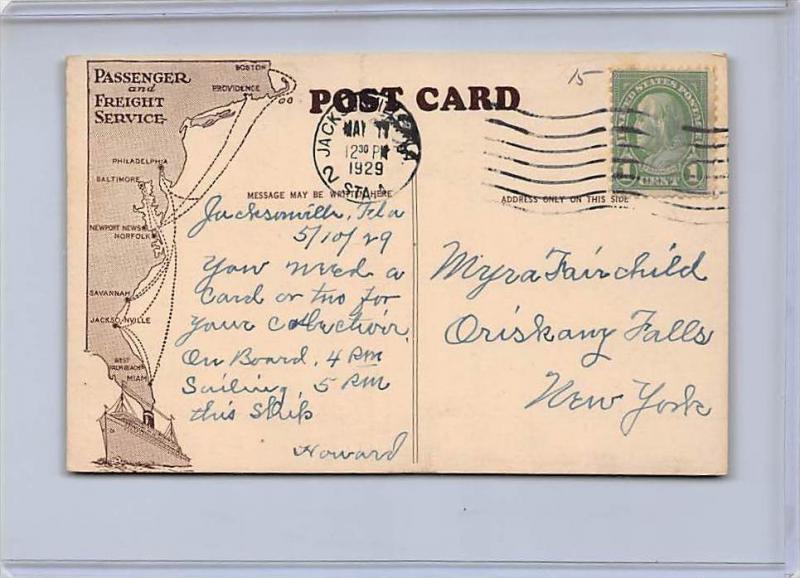 PASSENGER
and
FREIGHT
SERVICE
BOSTON
PROVIDENCE
PHILADELPHIA
BALTIMORE
NEWPORT NEWS
NORFOLK
SAVANNAH
JACKSONVILLE
WEST
PALM BEACH
MIAMI
POST CARD
15
MAY 11
12 30 PM
1929
2 STA.
UNITED STATES POSTAGE
1 CENT 1
MESSAGE MAY BE WRITTEN HERE
ADDRESS ONLY ON THIS SIDE
Jacksonville, Fla
5/10/29
You need a
Card or two for
your collection.
On Board, 4 PM
Sailing, 5 PM
this Ship
Howard
Myra Fairchild
Oriskany Falls
New York